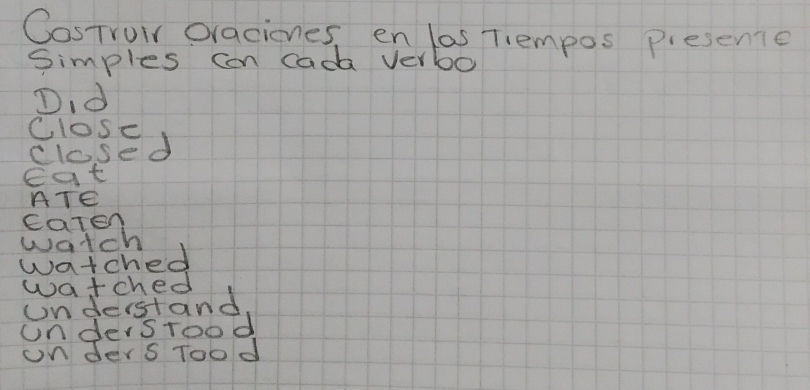 Costruir oraciones en los Tiempos presente
Simples con cada verbo
Did
Close
closed
Eat
ATE
EATEN
watch
watched
watched
understand
underSTood
underSTood